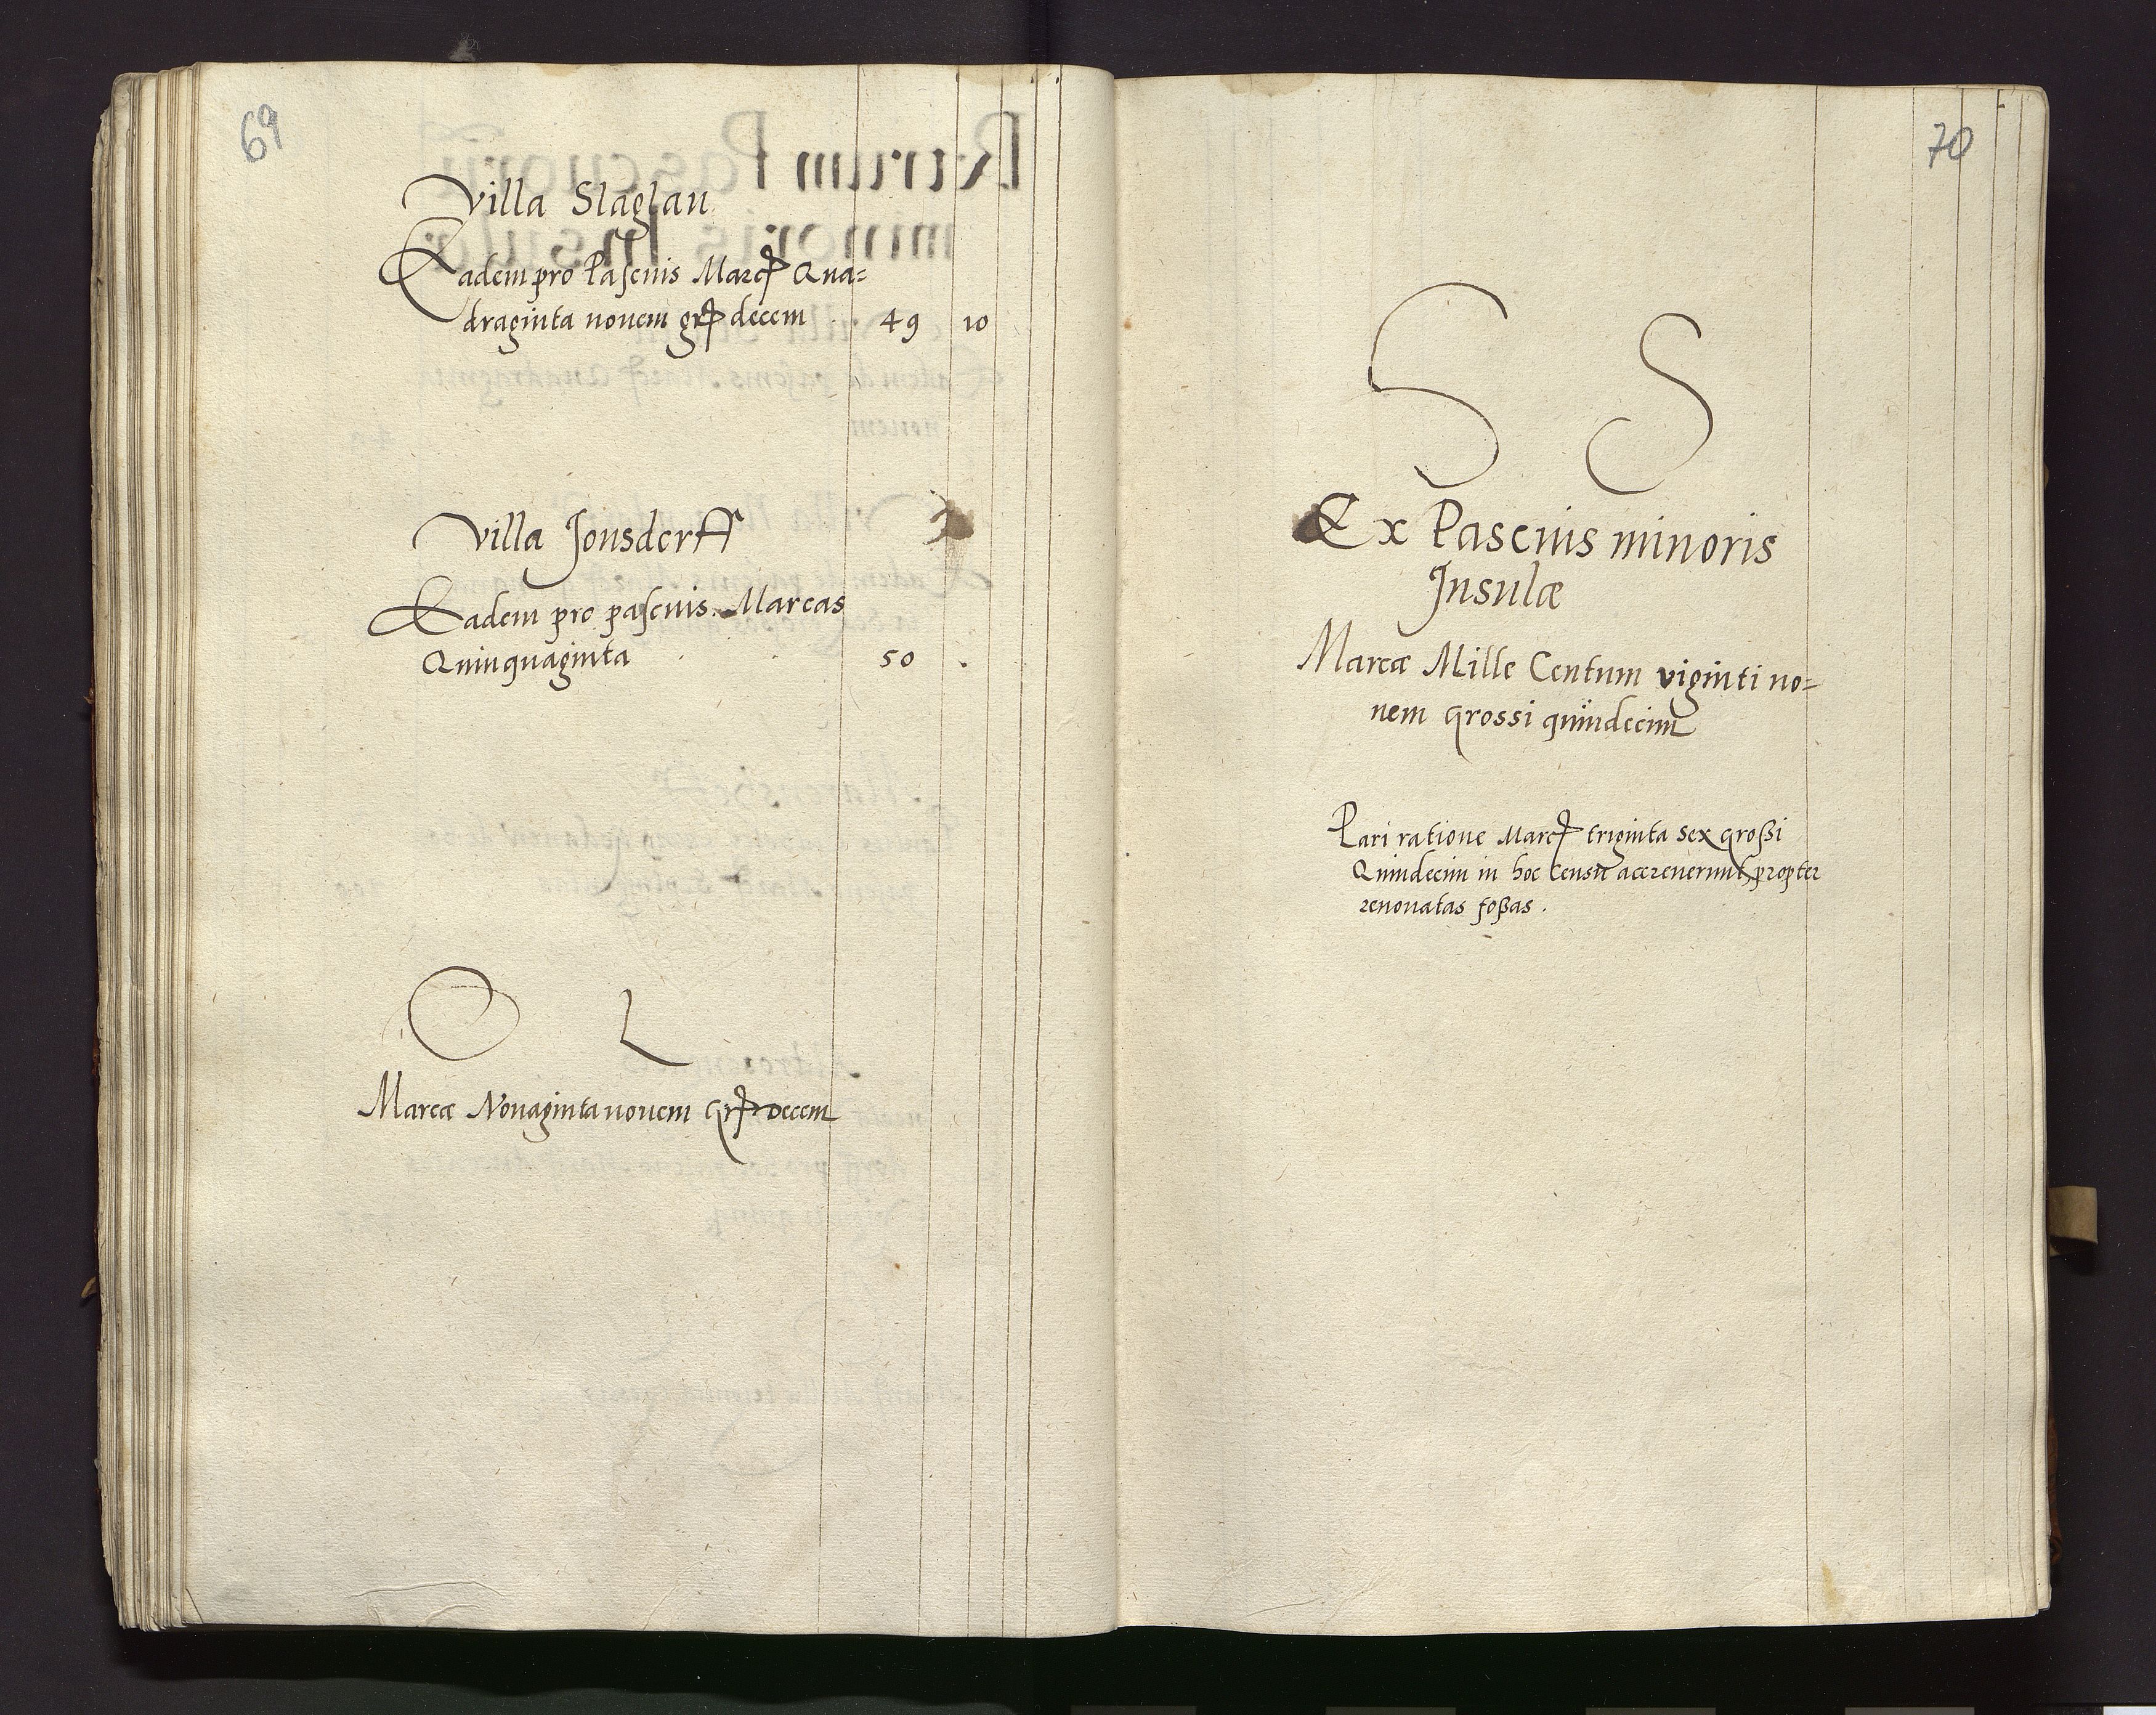 69
Villa Slaglau
Eadem pro Pascuis Marc Qua=
draginta nouem gr decem 49 10
Villa Jonsdorff
Eadem pro pascuis. Marcas
Quinquaginta 50 .
Marcæ Nonaginta nouem gr decem
70
S S
Ex Pascuis minoris
Insulæ
Marcæ Mille Centum viginti no=
uem grossi quindecim
Pari ratione Marc triginta sex großi
Quindecim in hoc Censu accreuerunt, propter
renouatas foßas .